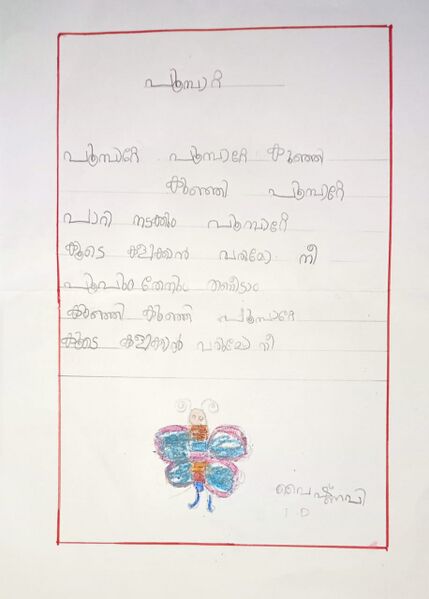 പൂമ്പാറ്റ
പൂമ്പാറ്റേ പൂമ്പാറ്റേ കുഞ്ഞി
കുഞ്ഞി പൂമ്പാറ്റേ
പാറി നടക്കും പൂമ്പാറ്റേ
കൂടെ കളിക്കാൻ വരുമോ നീ
പൂവും തേനും തന്നീടാം
കുഞ്ഞി കുഞ്ഞി പൂമ്പാറ്റേ
കൂടെ കളിക്കാൻ വരുമോ നീ
വൈഷ്ണവി
1 D